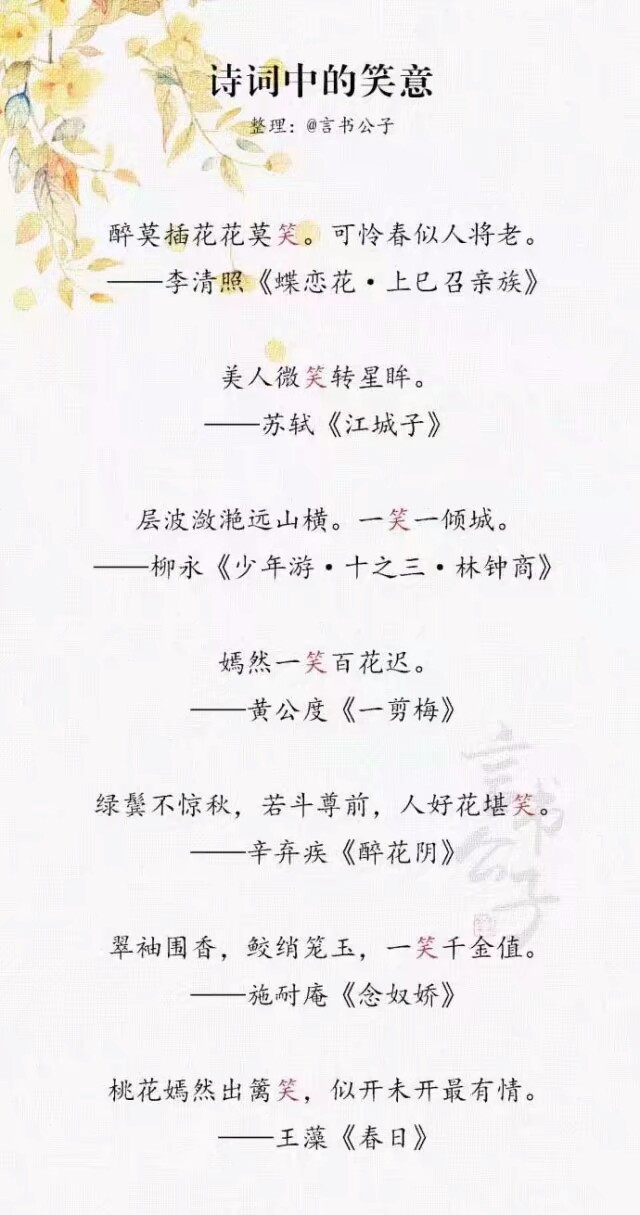 诗词中的笑意
整理：@言书公子
醉莫插花花莫笑。可怜春似人将老。
——李清照《蝶恋花·上巳召亲族》
美人微笑转星眸。
——苏轼《江城子》
层波潋滟远山横。一笑一倾城。
——柳永《少年游·十之三·林钟商》
嫣然一笑百花迟。
——黄公度《一剪梅》
绿鬓不惊秋，若斗尊前，人好花堪笑。
——辛弃疾《醉花阴》
翠袖围香，鲛绡笼玉，一笑千金值。
——施耐庵《念奴娇》
桃花嫣然出篱笑，似开未开最有情。
——王藻《春日》
言书公子